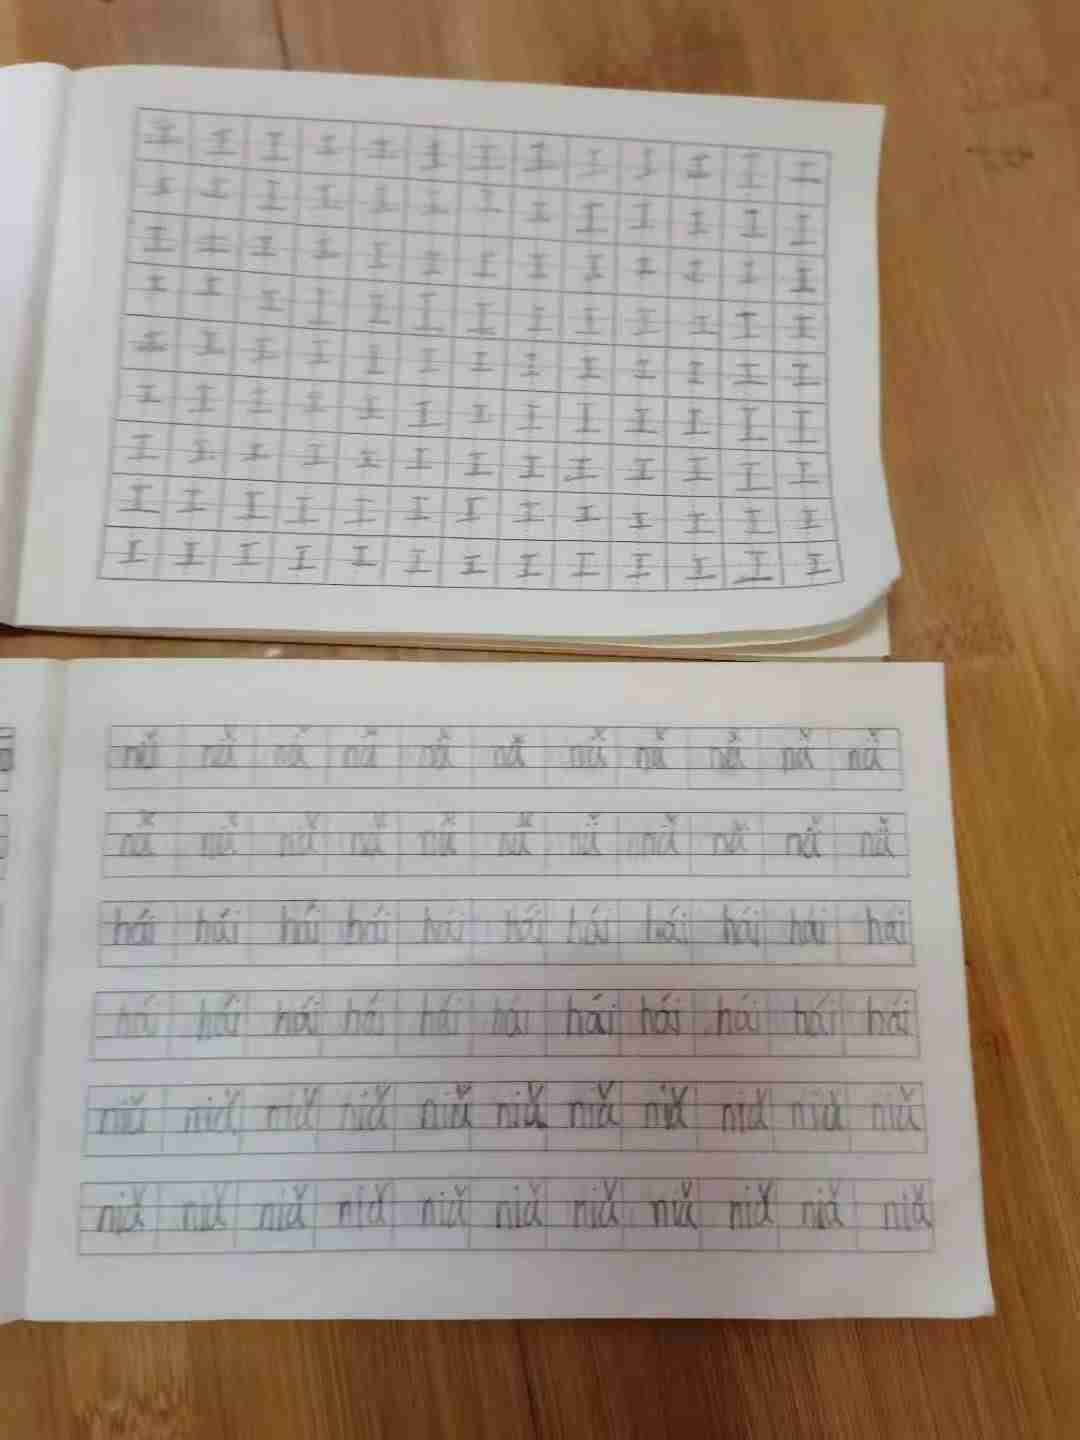 工 工 工 工 工 工 工 工 工 工 工 工 工
工 工 工 工 工 工 工 工 工 工 工 工 工
工 工 工 工 工 工 工 工 工 工 工 工 工
工 工 工 工 工 工 工 工 工 工 工 工 工
工 工 工 工 工 工 工 工 工 工 工 工 工
工 工 工 工 工 工 工 工 工 工 工 工 工
工 工 工 工 工 工 工 工 工 工 工 工 工
工 工 工 工 工 工 工 工 工 工 工 工 工
工 工 工 工 工 工 工 工 工 工 工 工 工
nǚ nǚ nǚ nǚ nǚ nǚ nǚ nǚ nǚ nǚ nǚ
nǚ nǚ nǚ nǚ nǚ nǚ nǚ nǚ nǚ nǚ nǚ
hái hái hái hái hái hái hái hái hái hái hái
hái hái hái hái hái hái hái hái hái hái hái
niǎ niǎ niǎ niǎ niǎ niǎ niǎ niǎ niǎ niǎ niǎ
niǎ niǎ niǎ niǎ niǎ niǎ niǎ niǎ niǎ niǎ niǎ